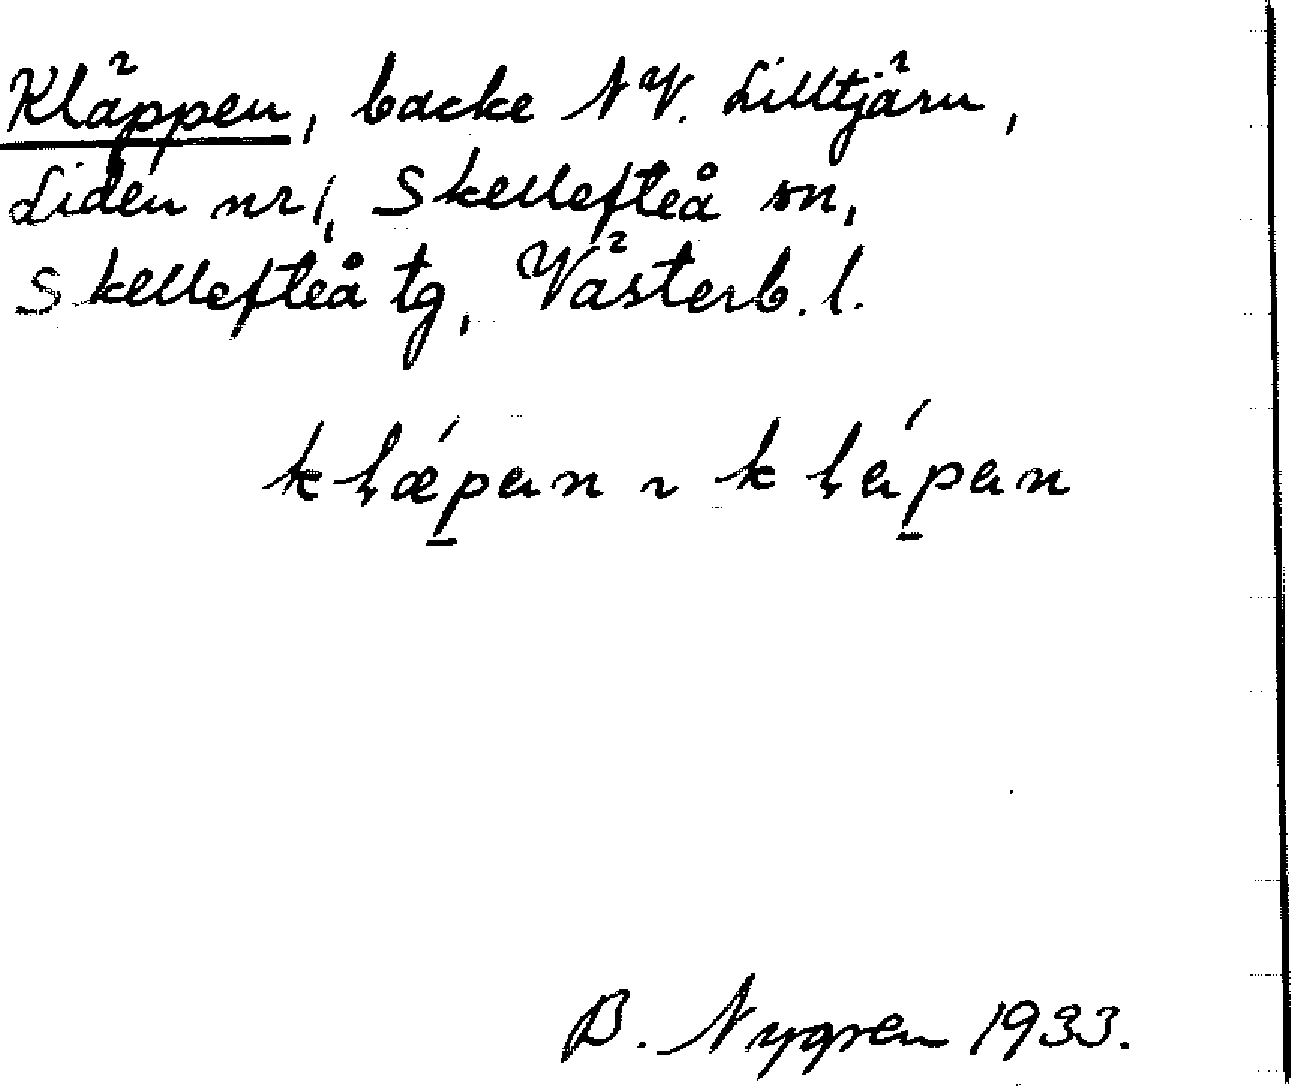 Kläppen, backe NV. Lilltjärn,
Liden nr 1, Skellefteå sn,
Skellefteå tg, Västerb. l.
kḷǽpen ~ kḷépen
B. Nygren 1933.